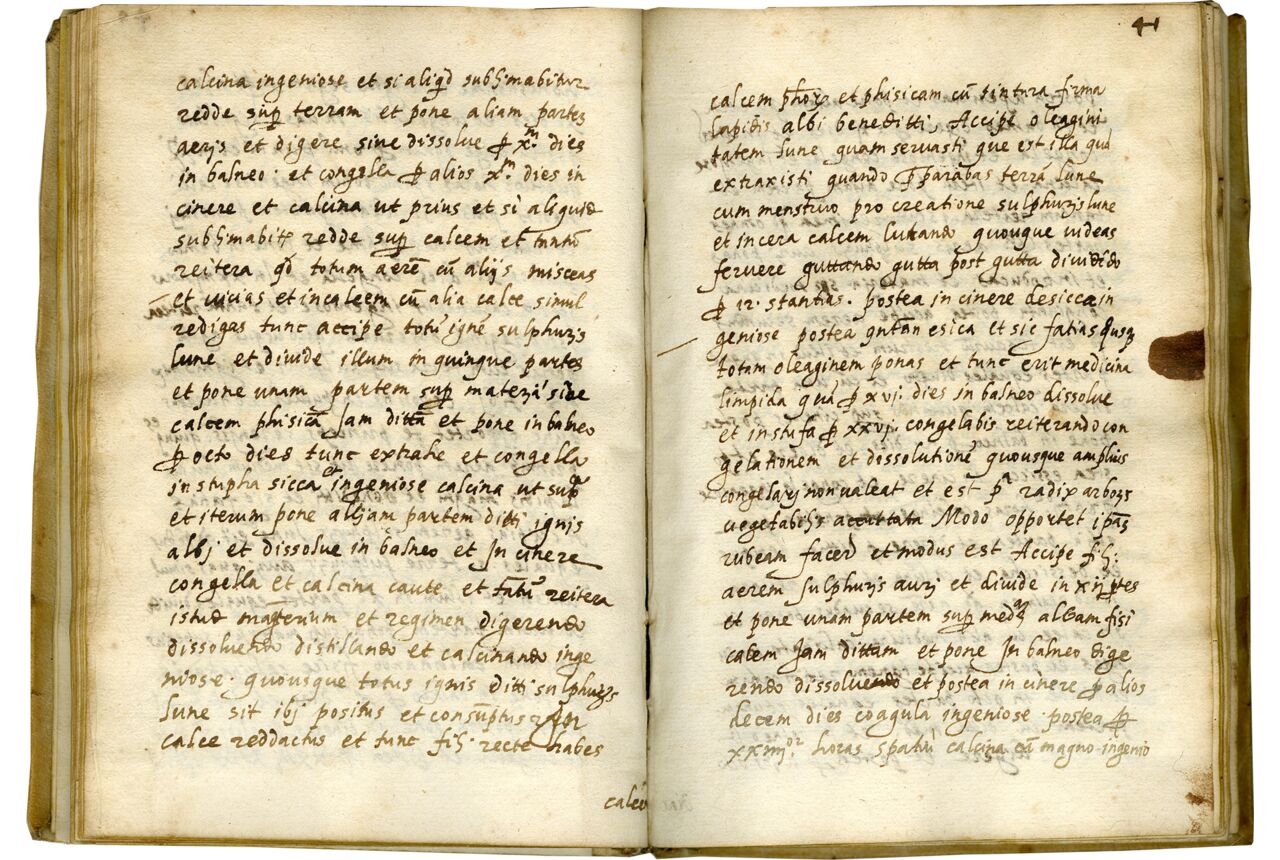 calcina ingeniose et si aliqd sublimabitur
redde sup terram et pone aliam partez
aeris et digere sive dissolve p xm. dies
in balneo. et congella p alios xm. dies in
cinere et calcina ut prius et si aliquid
sublimabitr redde sup calcem et tantū
reitera qd totum aerē cū alijs misceas
et incalcem cū alia calce simul
redigas tunc accipe totū ignē sulphuris
lune et divide illum in quinque partes
et pone unam partem sup materiā sive
calcem phisicā Jam dittā et pone in balneo
p octo dies tunc extrahe et congella
in stupha sicca et ingeniose calcina ut supra
et iterum pone aliam partem ditti ignis
albj et dissolve in balneo et Jn cinere
congella et calcina caute et tatū reitera
istud et regimen digerendo
dissolvendo distillando et calcinando inge
niose. quousque totus ignis ditti sulphuris
lune sit ibj positus et consūptus
calce reddactus et tunc fil. recte habes
calce
41
calcem et phisicam cū tintura firma
lapidis albi beneditti, Accipe oleagini
tatem lune quam servasti que est illa qua
extraxisti quando pparabas terrā lune
cum menstruo pro creatione sulphuris lune
et incera calcem quousque videas
fervere guttando gutta post gutta dividedo
p 12. stantias. postea in cinere desicca in
geniose postea et sic facias
totam oleaginem ponas et tunc erit medicina
limpida quā p xvj. dies in balneo dissolve
et in stufa p xxvj. congelabis reiterando con
gelationem et dissolutionē quousque amplius
congelarj non valeat et est pa radix arboris
vegetabilis Modo opportet ipās
rubeam facere et modus est Accipe fil:
aerem sulphuris aurj et divide in xij ptes
et pone unam partem sup albam fisi
calem Jam dittam et pone Jn balneo dige
rendo dissolvendo et postea in cinere p alios
decem dies coagula ingeniose. postea p
xxiiijor. horas spatiū calcina cū magno ingenio